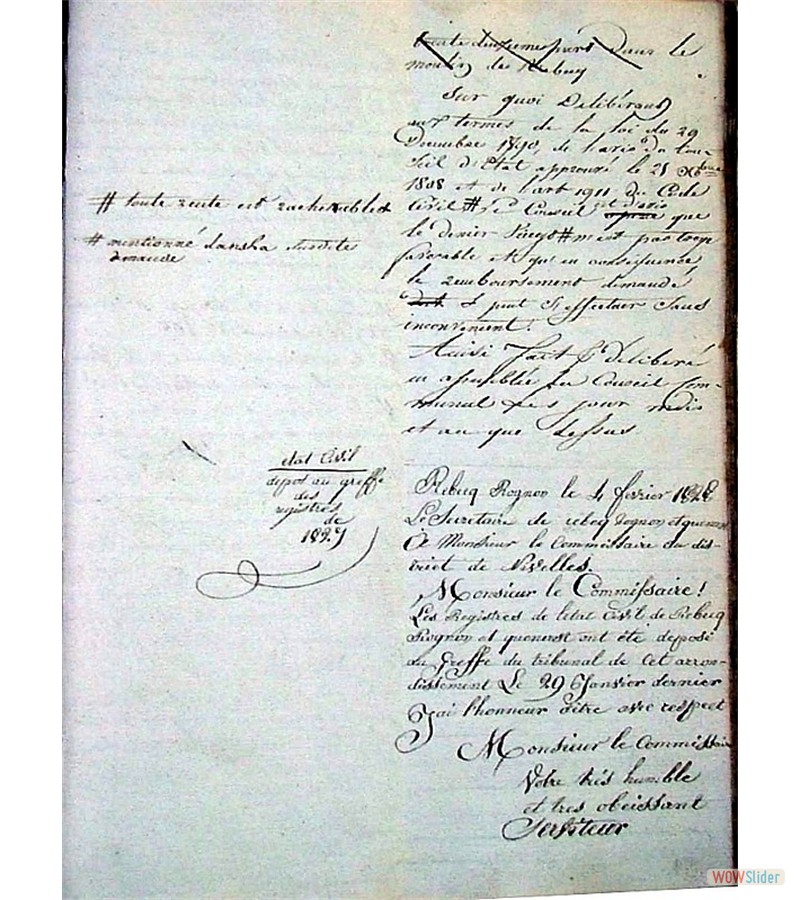 dans le
moulin de Rebecq
Sur quoi Délibérant
aux termes de la loi du 29
Décembre 1790, de l'avis du Con-
seil d'Etat approuvé le 21 Xbre
1808 et de l'art 1911 du Code
Civil # Le Conseil est d'avis que
le denier Vingt # n'est pas trop
favorable et qu'en conséquence
le remboursement demandé
peut s'effectuer sans
inconvenient.
Ainsi fait & délibéré
en assemblée du Conseil Com-
munal les jour mois
et an que dessus
# toute rente est rachetable
# mentionné dans la susdite
demande
état Civil
depot au greffe
des
registres
de
1827
Rebecq Rognon le 4 fevrier 1828
Le Secretaire de rebecq rognon et quenast
A Monsieur le Commissaire du dis-
trict de Nivelles.
Monsieur le Commissaire!
Les Registres de l'etat Civil de Rebecq
Rognon et quenast ont été deposé
au Greffe du tribunal de cet arron-
dissement Le 29 Janvier dernier
J'ai l'honneur d'être avec respect
Monsieur le Commissaire
Votre très humble
et tres obeissant
Serviteur
WOWSlider